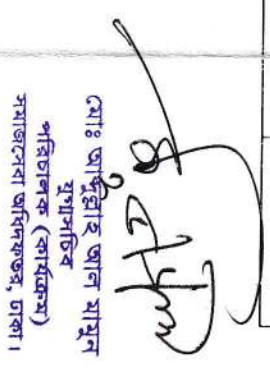 মোঃ আব্দুল্লাহ আল মামুন
যুগ্মসচিব
পরিচালক (কার্যক্রম)
সমাজসেবা অধিদফতর, ঢাকা।